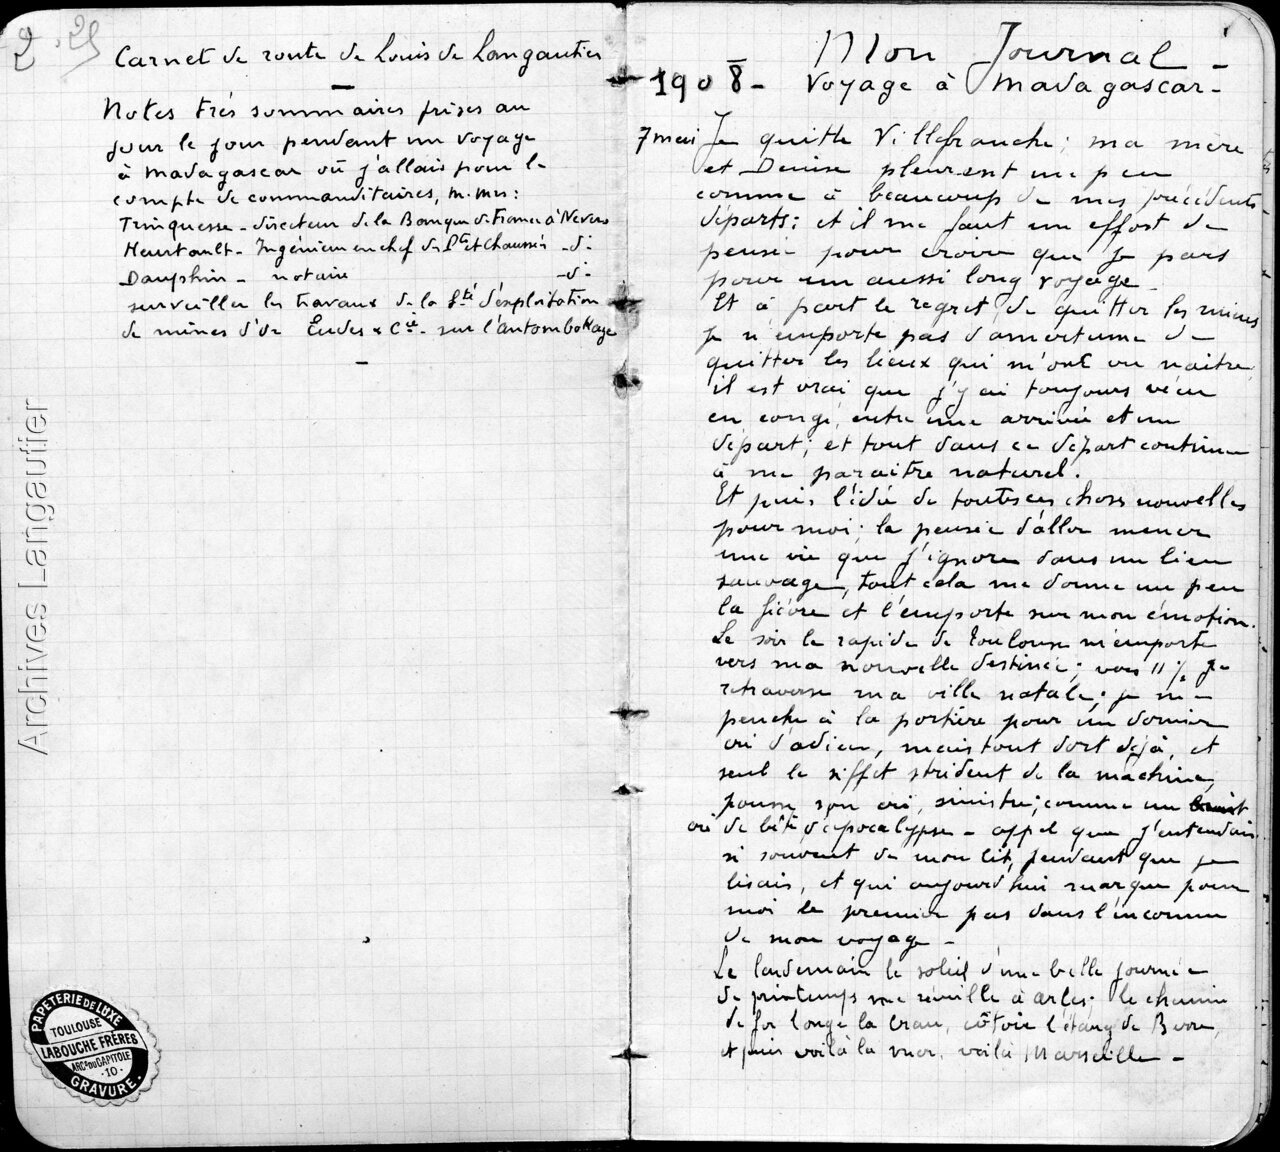 2.25
Carnet de route de Louis de Langautier
Notes très sommaires prises au
jour le jour pendant un voyage
à Madagascar où j'allais pour le
compte de commanditaires, M.Mrs:
Trinquesse - directeur de la Banque de France à Nevers
Heurtault - Ingénieur en chef des Pts et Chaussées -d:-
Dauphin - notaire -d:-
surveiller les travaux de la Sté d'exploitation
de mines d'or Eudes & Cie - sur l'antombokage
Archives Langautier
PAPETERIE DE LUXE
TOULOUSE
LABOUCHE FRÈRES
ARCes DU CAPITOLE
·10·
GRAVURE.
Mon Journal -
1908 - Voyage à Madagascar -
7 mai Je quitte Villefranche; ma mère
et Denise pleurent un peu
comme à beaucoup de mes précédents
départs; et il me faut un effort de
pensée pour croire que je pars
pour un aussi long voyage -
Et à part le regret de quitter les miens
je n'emporte pas d'amertume de
quitter les lieux qui m'ont vu naitre,
il est vrai que j'y ai toujours vécu
en congé, entre une arrivée et un
départ; et tout dans ce départ continue
à me paraitre naturel.
Et puis l'idée de toutes ces choses nouvelles
pour moi; la pensée d'aller mener
une vie que j'ignore dans un lieu
sauvage, tout cela me donne un peu
la fièvre et l'emporte sur mon émotion.
Le soir le rapide de Toulouse m'emporte
vers ma nouvelle destinée; vers 11 h je
retraverse ma ville natale; je me
penche à la portière pour un dernier
cri d'adieu, mais tout dort déjà, et
seul le sifflet strident de la machine,
pousse son cri, sinistre; comme un bruit
cri de bête d'apocalypse - appel que j'entendais
si souvent de mon lit, pendant que je
lisais, et qui aujourd'hui marque pour
moi le premier pas dans l'inconnu
de mon voyage -
Le lendemain le soleil d'une belle journée
de printemps me réveille à Arles; le chemin
de fer longe la Crau, côtoie l'étang de Berre,
et puis voilà la mer, voilà Marseille -